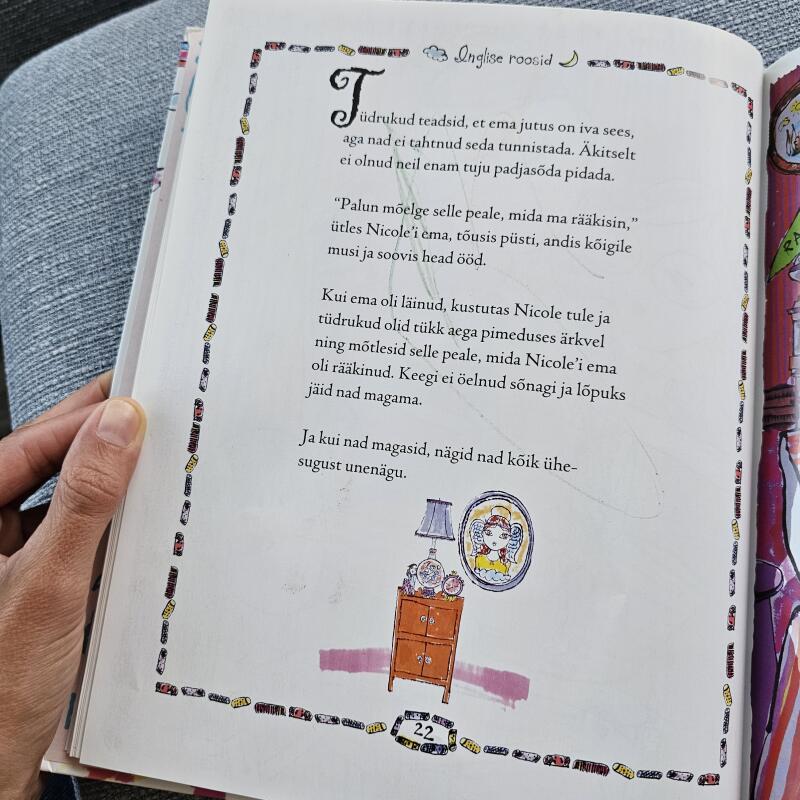 Inglise roosid
Tüdrukud teadsid, et ema jutus on iva sees,
aga nad ei tahtnud seda tunnistada. Äkitselt
ei olnud neil enam tuju padjasõda pidada.
“Palun mõelge selle peale, mida ma rääkisin,”
ütles Nicole’i ema, tõusis püsti, andis kõigile
musi ja soovis head ööd.
Kui ema oli läinud, kustutas Nicole tule ja
tüdrukud olid tükk aega pimeduses ärkvel
ning mõtlesid selle peale, mida Nicole’i ema
oli rääkinud. Keegi ei öelnud sõnagi ja lõpuks
jäid nad magama.
Ja kui nad magasid, nägid nad kõik ühe-
sugust unenägu.
22